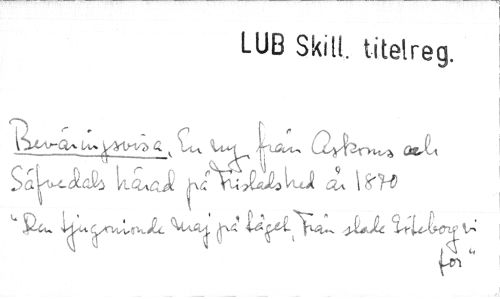 LUB Skill. titelreg.
Beväringsvisa, En ny, från Askoms och
Säfvedals härad på Fristadshed år 1870
"Den tjugonionde maj på tåget, Från stade Göteborg vi
for"